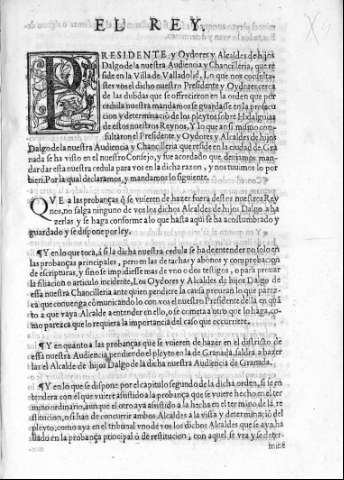 EL REY.
PRESIDENTE y Oydores y Alcaldes de hijos
Dalgo de la nuestra Audiencia y Chancilleria, que re
side en la Villa de Valladolid, Lo que nos consultas
tes vos el dicho nuestro Presidente y Oydores cerca
de las dudas que se offrecieron en la orden que por
cedula nuestra mandamos se guardasse en la prosecu
cion y determinacion de los pleytos sobre Hidalguias
de estos nuestros Reynos, Y lo que ansi mismo con-
sultaron el Presidente y Oydores y Alcaldes de hijos
Dalgo de la nuestra Audiencia y Chancilleria que reside en la ciudad de Gra
nada se ha visto en el nuestro Consejo, y fue acordado que deviamos man-
dar dar esta nuestra cedula para vos en la dicha razon, y nos tuuimos lo por
bien. Por la qual declaramos, y mandamos lo siguiente.
QVE a las probanças q̃ se vuieren de hazer fuera destos nuestros Rey
nos, no salga ninguno de vos los dichos Alcaldes de hijos Dalgo a ha
zerlas y se haga conforme a lo que hasta aqui se ha acostumbrado y
guardado y se dispone por ley.
¶ Y en lo que toca, a si la dicha nuestra cedula se ha de entender no solo en
las probanças principales, pero en las de tachas y abonos y comprobacion
de escripturas, y si no se impidiesse mas de vno o dos testigos, o para prouar
la filiacion o articulo incidente, Los Oydores y Alcaldes de hijos Dalgo de
essa nuestra Chancilleria ante quien pendiere la causa prouean lo que pares
ca que conuenga comunicando lo con vos el nuestro Presidente de la en quã
to a que vaya Alcalde a entender en ello, o se cometa a otro que lo haga, co-
mo paresca que lo requiera la importancia del caso que occurriere.
¶ Y en quanto a las probanças que se vuieren de hazer en el districto de
essa nuestra Audiencia pendiendo el pleyto en la de Granada, saldra a hazer
las el Alcalde de hijos Dalgo de la dicha nuestra Audiencia de Granada.
¶ Y en lo que se dispone por el capitulo segundo de la dicha orden, si se en
tendera con el que vuiere assistido a la probança que se vuiere hecho en el ter
mino ordinario, aunque el otro aya assistido a la hecha en el termino de la re
stitucion, o si han de concurrir ambos Alcaldes a la vista y determinaciõ del
pleyto; como aya en el tribunal vno de vos los dichos Alcaldes que se aya ha
llado en la probança principal o de restitucion, con aquel se vea y se deter-
mine